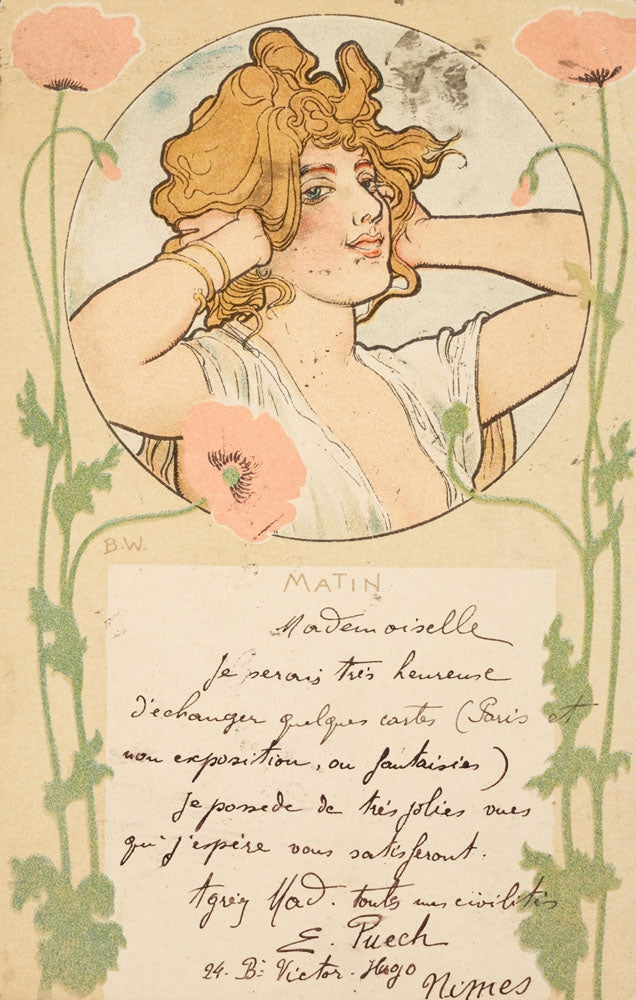 B.W.
MATIN
Mademoiselle
Je serais très heureuse
d'échanger quelques cartes (Paris et
non exposition, ou fantaisies)
Je possede de très jolies vues
qui j'espère vous satisferont.
Agréez Mad. toutes mes civilités
E. Puech
24. Bd Victor. Hugo
Nimes